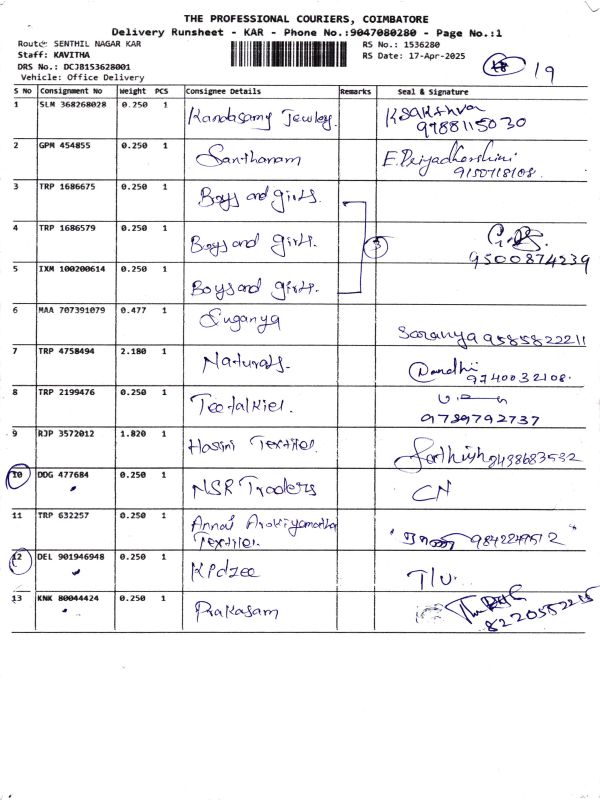 THE PROFESSIONAL COURIERS, COIMBATORE
Delivery Runsheet - KAR - Phone No.:9047080280 - Page No.:1
Route: SENTHIL NAGAR KAR RS No.: 1536280
Staff: KAVITHA RS Date: 17-Apr-2025
DRS No.: DCJ8153628001
Vehicle: Office Delivery
19
S No Consignment No Weight PCS Consignee Details Remarks Seal & Signature
1 SLM 368268028 0.250 1 Kandasamy Jewlery 9788115030
2 GPM 454855 0.250 1 Santhanam E. Priyadharshini 9150718108
3 TRP 1686675 0.250 1 Boys and girls.
4 TRP 1686579 0.250 1 Boys and girls. 3 9500874239
5 IXM 100200614 0.250 1 Boys and girls.
6 MAA 707391079 0.477 1 Suganya Saranya 9585822211
7 TRP 4758494 2.180 1 Naturals. Nandhi 9740032108.
8 TRP 2199476 0.250 1 9789792737
9 RJP 3572012 1.820 1 Hasini Textiles
10 DDG 477684 0.250 1 NSR Traders CN
11 TRP 632257 0.250 1 Annai Arokiyamatha
Textiles.
12 DEL 901946948 0.250 1 Kidzee
13 KNK 80044424 0.250 1 Prakasam 8220552215